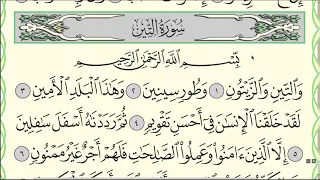 سُورَةُ التِّينِ
بِسْمِ اللَّهِ الرَّحْمَٰنِ الرَّحِيمِ
وَالتِّينِ وَالزَّيْتُونِ ١ وَطُورِ سِينِينَ ٢ وَهَٰذَا الْبَلَدِ الْأَمِينِ ٣
لَقَدْ خَلَقْنَا الْإِنسَانَ فِي أَحْسَنِ تَقْوِيمٍ ٤ ثُمَّ رَدَدْنَاهُ أَسْفَلَ سَافِلِينَ
٥ إِلَّا الَّذِينَ آمَنُوا وَعَمِلُوا الصَّالِحَاتِ فَلَهُمْ أَجْرٌ غَيْرُ مَمْنُونٍ ٦